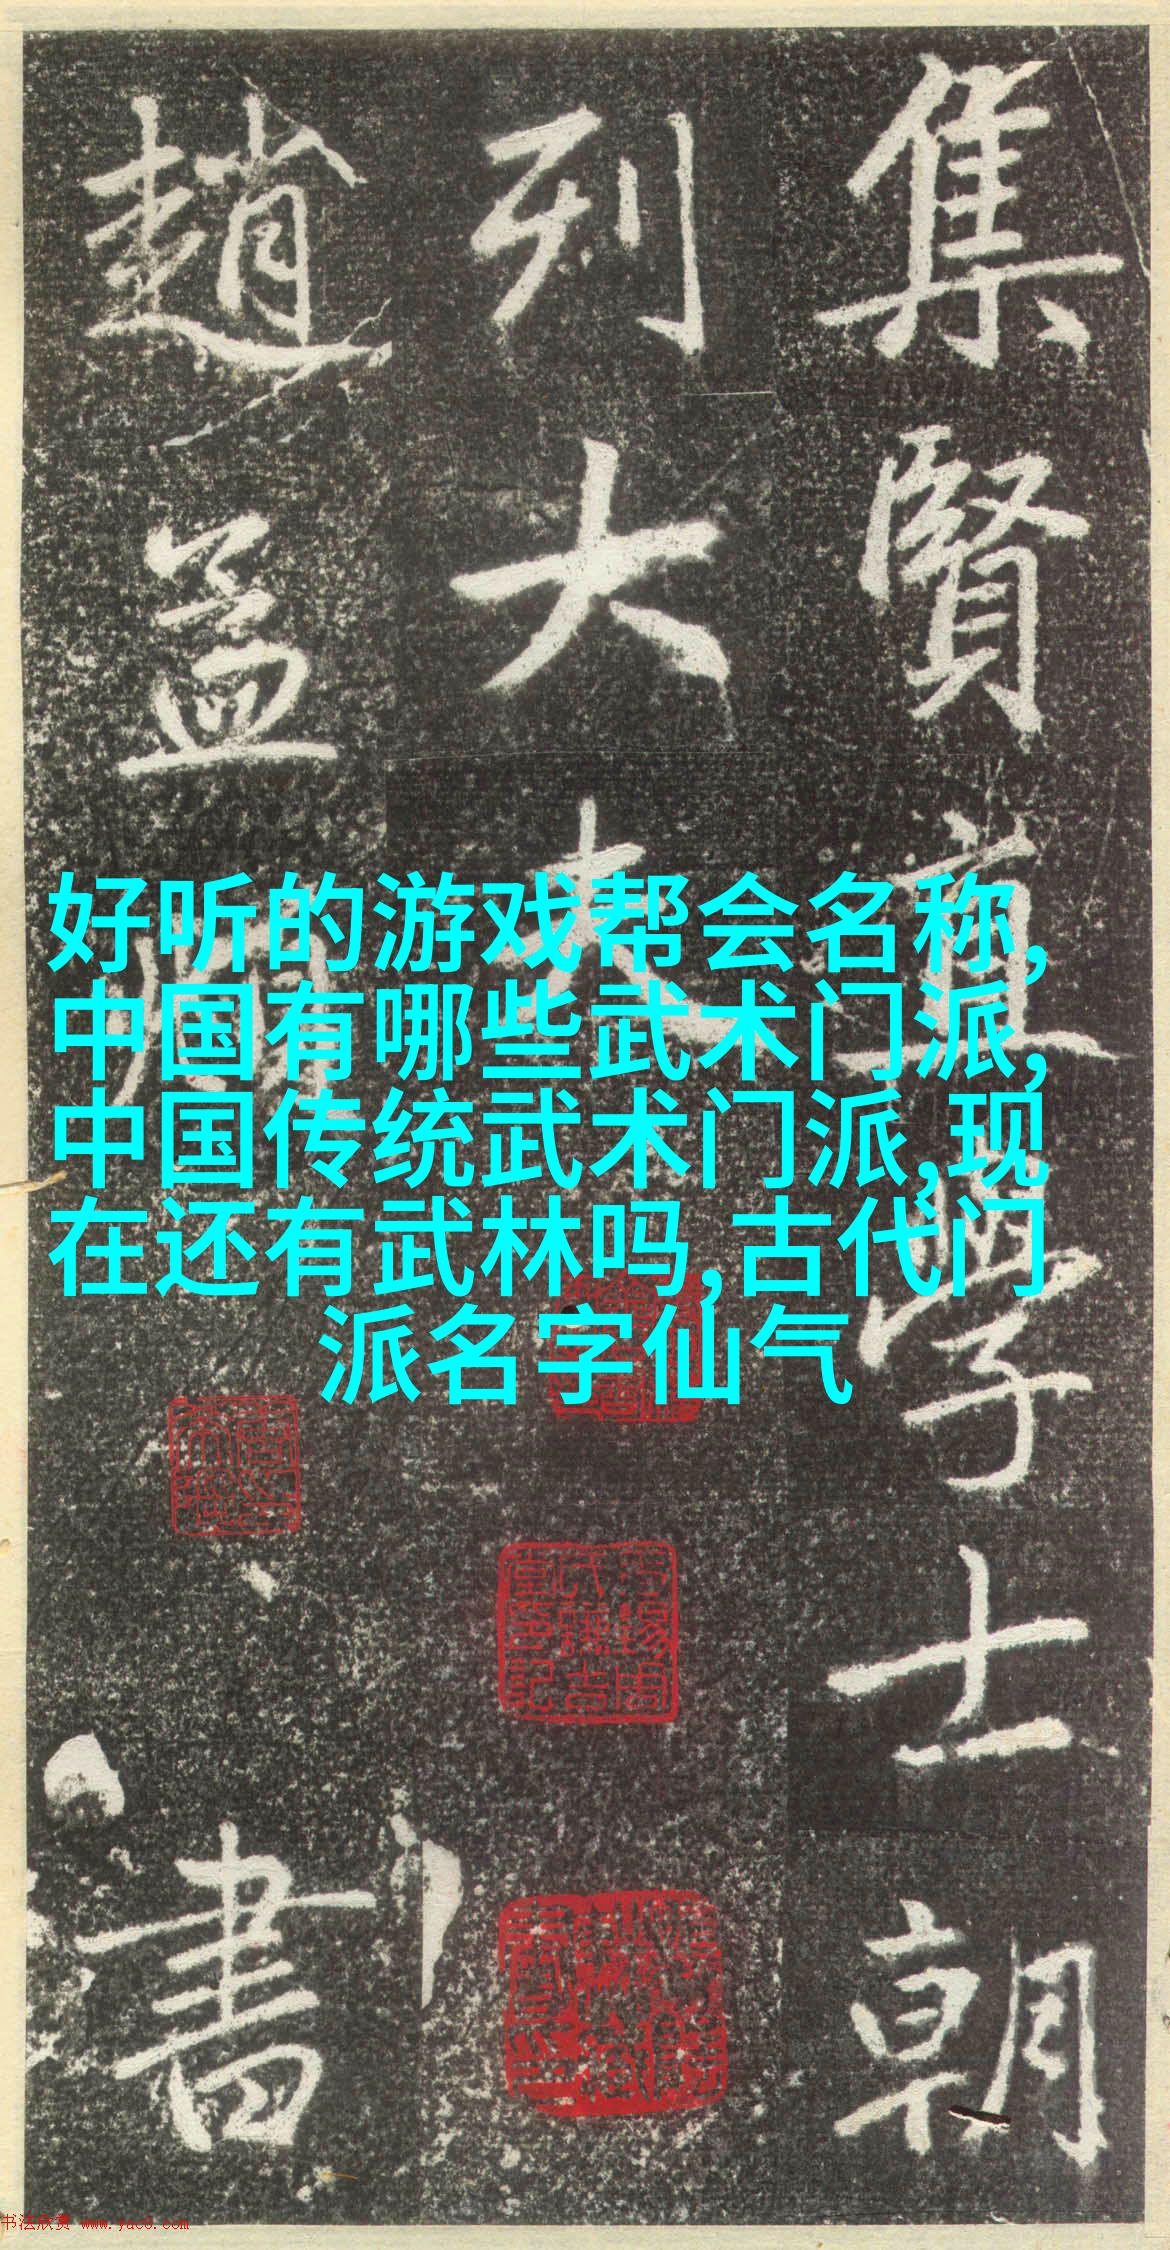 集賢直學士朝
列大夫
趙孟頫書
好听的游戏帮会名称,
中国有哪些武术门派,
中国传统武术门派,现
在还有武林吗,古代门
派名字仙气
书法欣赏 www.yac8.com